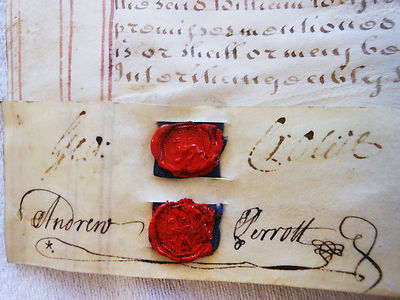 the said William
premises mentioned
is or shall or may be
Interchangeably
Geo:
Andrew Perrott